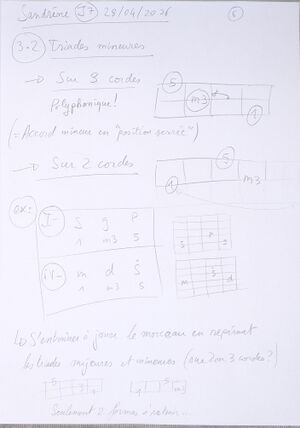 Sandrine J7 28/04/2026
3.2 Triades mineures
→ Sur 3 cordes
Polyphonique!
5
m3
1
(= Accord mineur en "position serrée")
→ Sur 2 cordes
5
1 m3
ex:
I- S g P
1 m3 5
IV- m d Ṡ
1 m3 5
↳ S'entraîner à jouer le morceau en repérant
les triades majeures et mineures (sur 3 cordes?)
Seulement 2 formes à retenir...